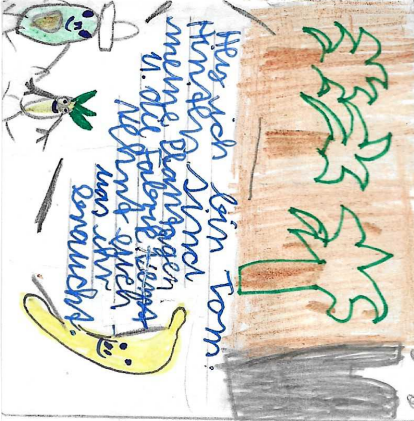 Hey ich bin Tom.
Hinten sind
meine Plantagen
u. alle Talente
nehmt euch
was ihr
braucht